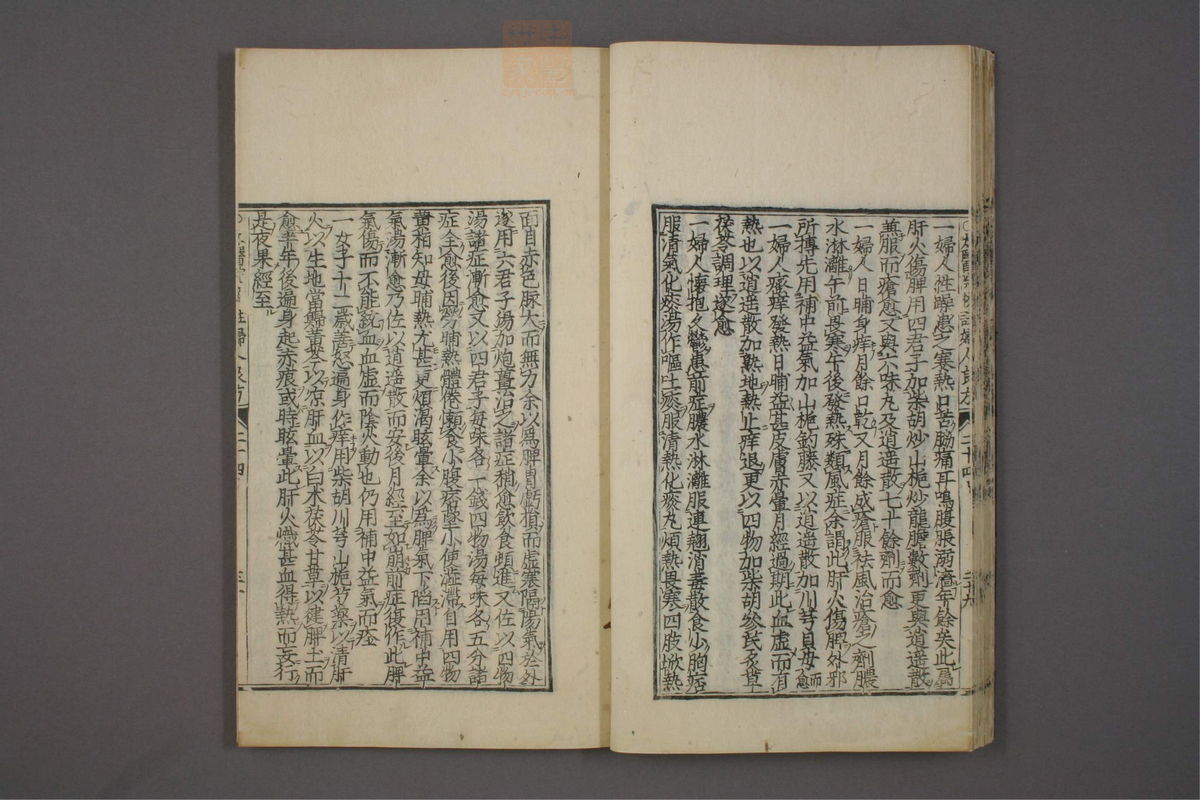 一婦人性躁患之寒熱口苦脇痛耳鳴腹脹溺澁年餘矣此屬
肝火傷脾用四君子加柴胡炒山梔炒龍膽數劑更與逍遥散
兼服而瘡愈又與六味丸及逍遥散七十餘劑而愈
一婦人日晡身痒月餘口乾又月餘成瘡服祛風治瘡之劑膿
水淋漓午前畏寒午後發熱殊類風症余謂此肝火傷脾外邪
所搏先用補中益氣加山梔釣藤又以逍遥散加川芎貝母而愈
一婦人瘙痒發熱日晡益甚皮膚赤暈月經過期此血虛而有
熱也以逍遥散加熟地熱止痒退更以四物加柴胡參芪炙草
茯苓調理遂愈
一婦人懷抱久鬱患前症膿水淋漓服連翹消毒散食少胸痞
服清氣化痰湯作嘔吐痰服清熱化痰丸煩熱畏寒四肢
二十四
面目赤色脉大而無力余以爲脾胃虧損而虛寒隔陽氣於外
遂用六君子湯加炮薑治之諸症稍愈飲食頓進又佐以四物
湯諸症漸愈又以四君子每味各一錢四物湯每味各五分諸
症全愈後因勞晡熱體倦懶食小腹痞墜小便澁滯自用四物
黄栢知母晡熱尤甚更煩渴眩暈余以爲脾氣下陷用補中益
氣湯漸愈乃佐以逍遥散而安後月經至如崩前症復作此脾
氣傷而不能統血血虛而陰火動也仍用補中益氣而痊
一女子十二歲善怒遍身作痒用柴胡川芎山梔芍藥以清肝
火以生地當歸黄芩以凉肝血以白术茯苓甘草以健脾土而
愈半年後遍身起赤痕或時眩暈此肝火熾甚血得熱而妄行
是夜果經至
婦人良方
二十四